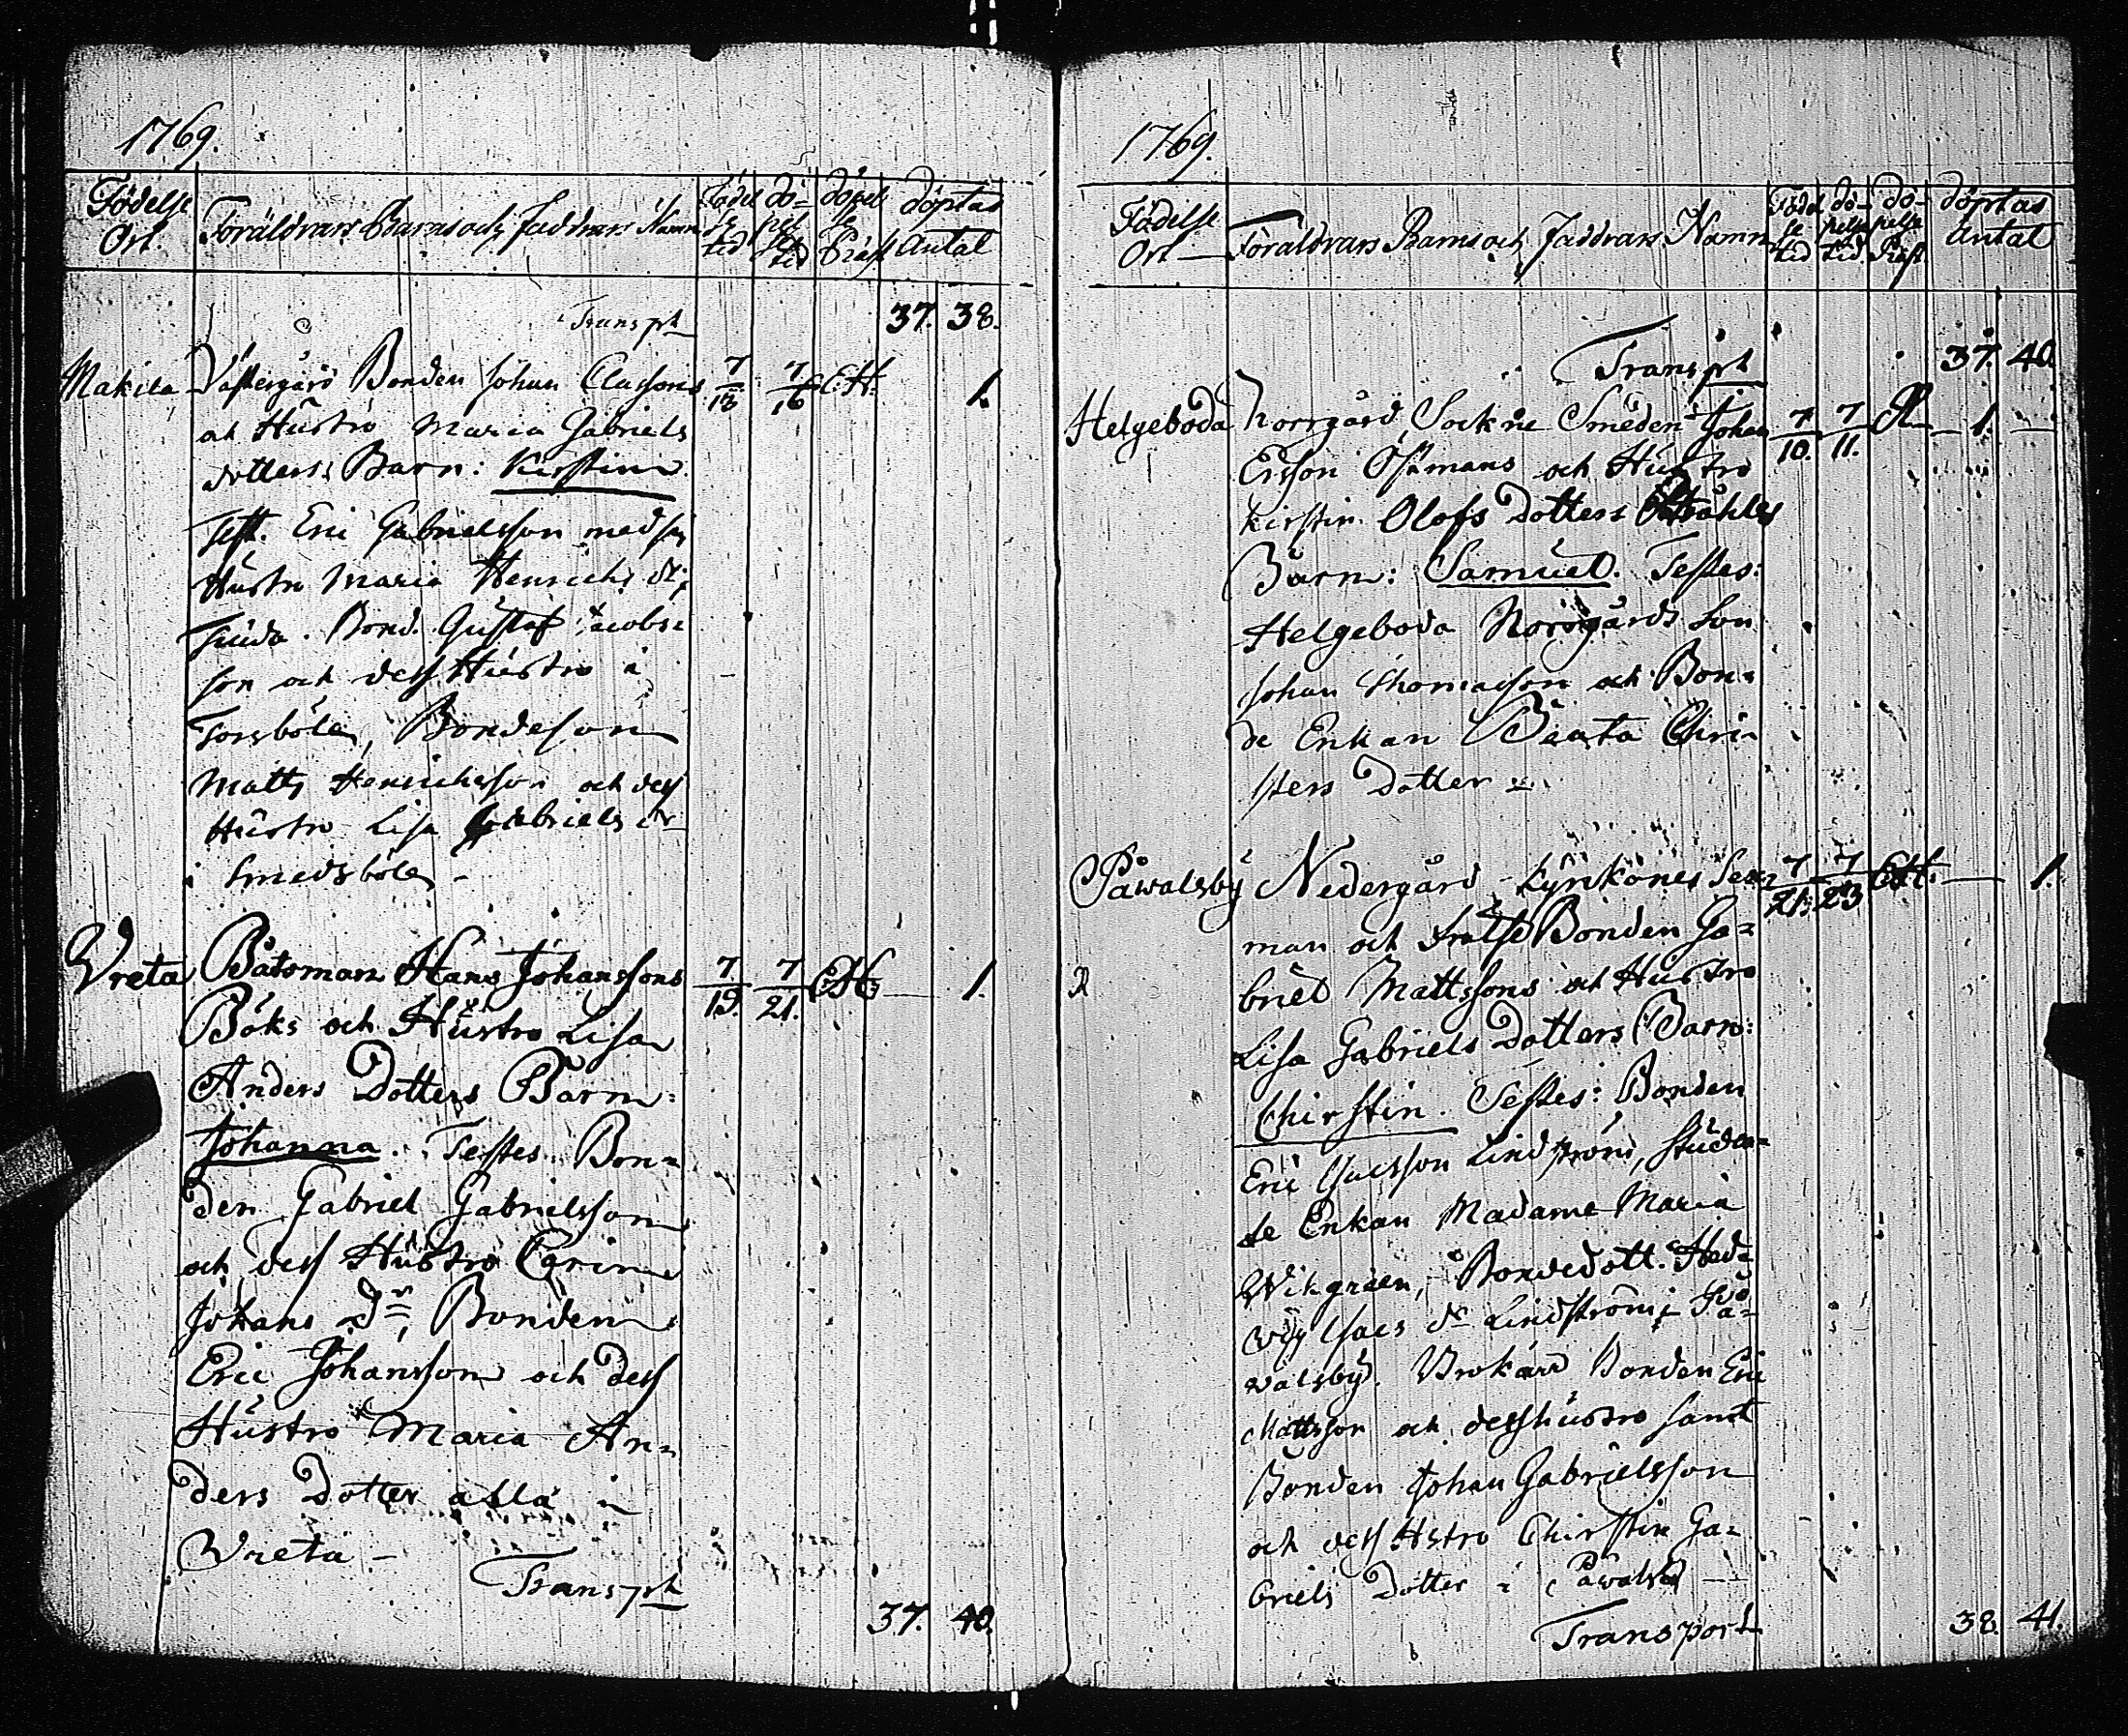 1769.
Födelse Ort.
Föräldrars Barns och Faddrars Namn
Födelse tid
döpelse tid
döpelse Präst
döptas Antal
Transpt 37. 38.
Makila Västergård Bonden Johan Classons 7/13 7/16 EH. 1.
och Hustro Maria Gabriels
dotters Barn: Kirstin
Test. Eric Gabrielsson med sin
Hustro Maria Henrichs dr i
Bond. Gustaf Jacobs=
son och dess Hustro i
Torsböle, Bondeson
Matts Henrichsson och dess
Hustro Lisa Gabriels dr
i Smedsböle
Vreta Båtsman Hans Johanssons 7/19. 7/21. EH. 1.
Böks och Hustro Lisa
Anders Dotters Barn:
Johanna. Testes. Bon=
den Gabriel Gabrielsson
och dess Hustro Carin
Johans dr, Bonden
Eric Johansson och dess
Hustro Maria An=
ders Dotter alla i
Wreta –
Transpt
37. 40.
1769.
Födelse Ort
Föräldrars Barns och Faddrars Namn
Födelse tid
döpelse tid
döpelse Präst
döptas Antal
Transpt 37. 40.
Helgeboda Norrgård Sockne Smeden Johan 7/10. 7/11. 1. —
Ersson Östmans och Hustro
Kirstin Olofs Dotters Stråhles
Barn: Samuel. Testes:
Helgeboda Norrgårds Son
Johan Thomasson och Bon=
de Enkan Beata Chri=
sters Dotter
Påwalsby Nedergård Kyrkones Sex= 7/21. 7/23 EH. — 1.
man och Frälse Bonden Ga=
briel Mattssons och Hustro
Lisa Gabriels Dotters Barn:
Chirstin. Testes: Bonden
Eric Isacsson Lindström, Studen=
te Enkan Madame Maria
Wikgreen, Bondedott. Hed=
wig Isacs dr Lindström i På=
walsby. Brokärr Bonden Eric
Mattsson och dess hustro samt
Bonden Johan Gabrielsson
och dess Hstro Chirstin Ga=
briels Dotter i Påwalsby
Transport 38. 41.